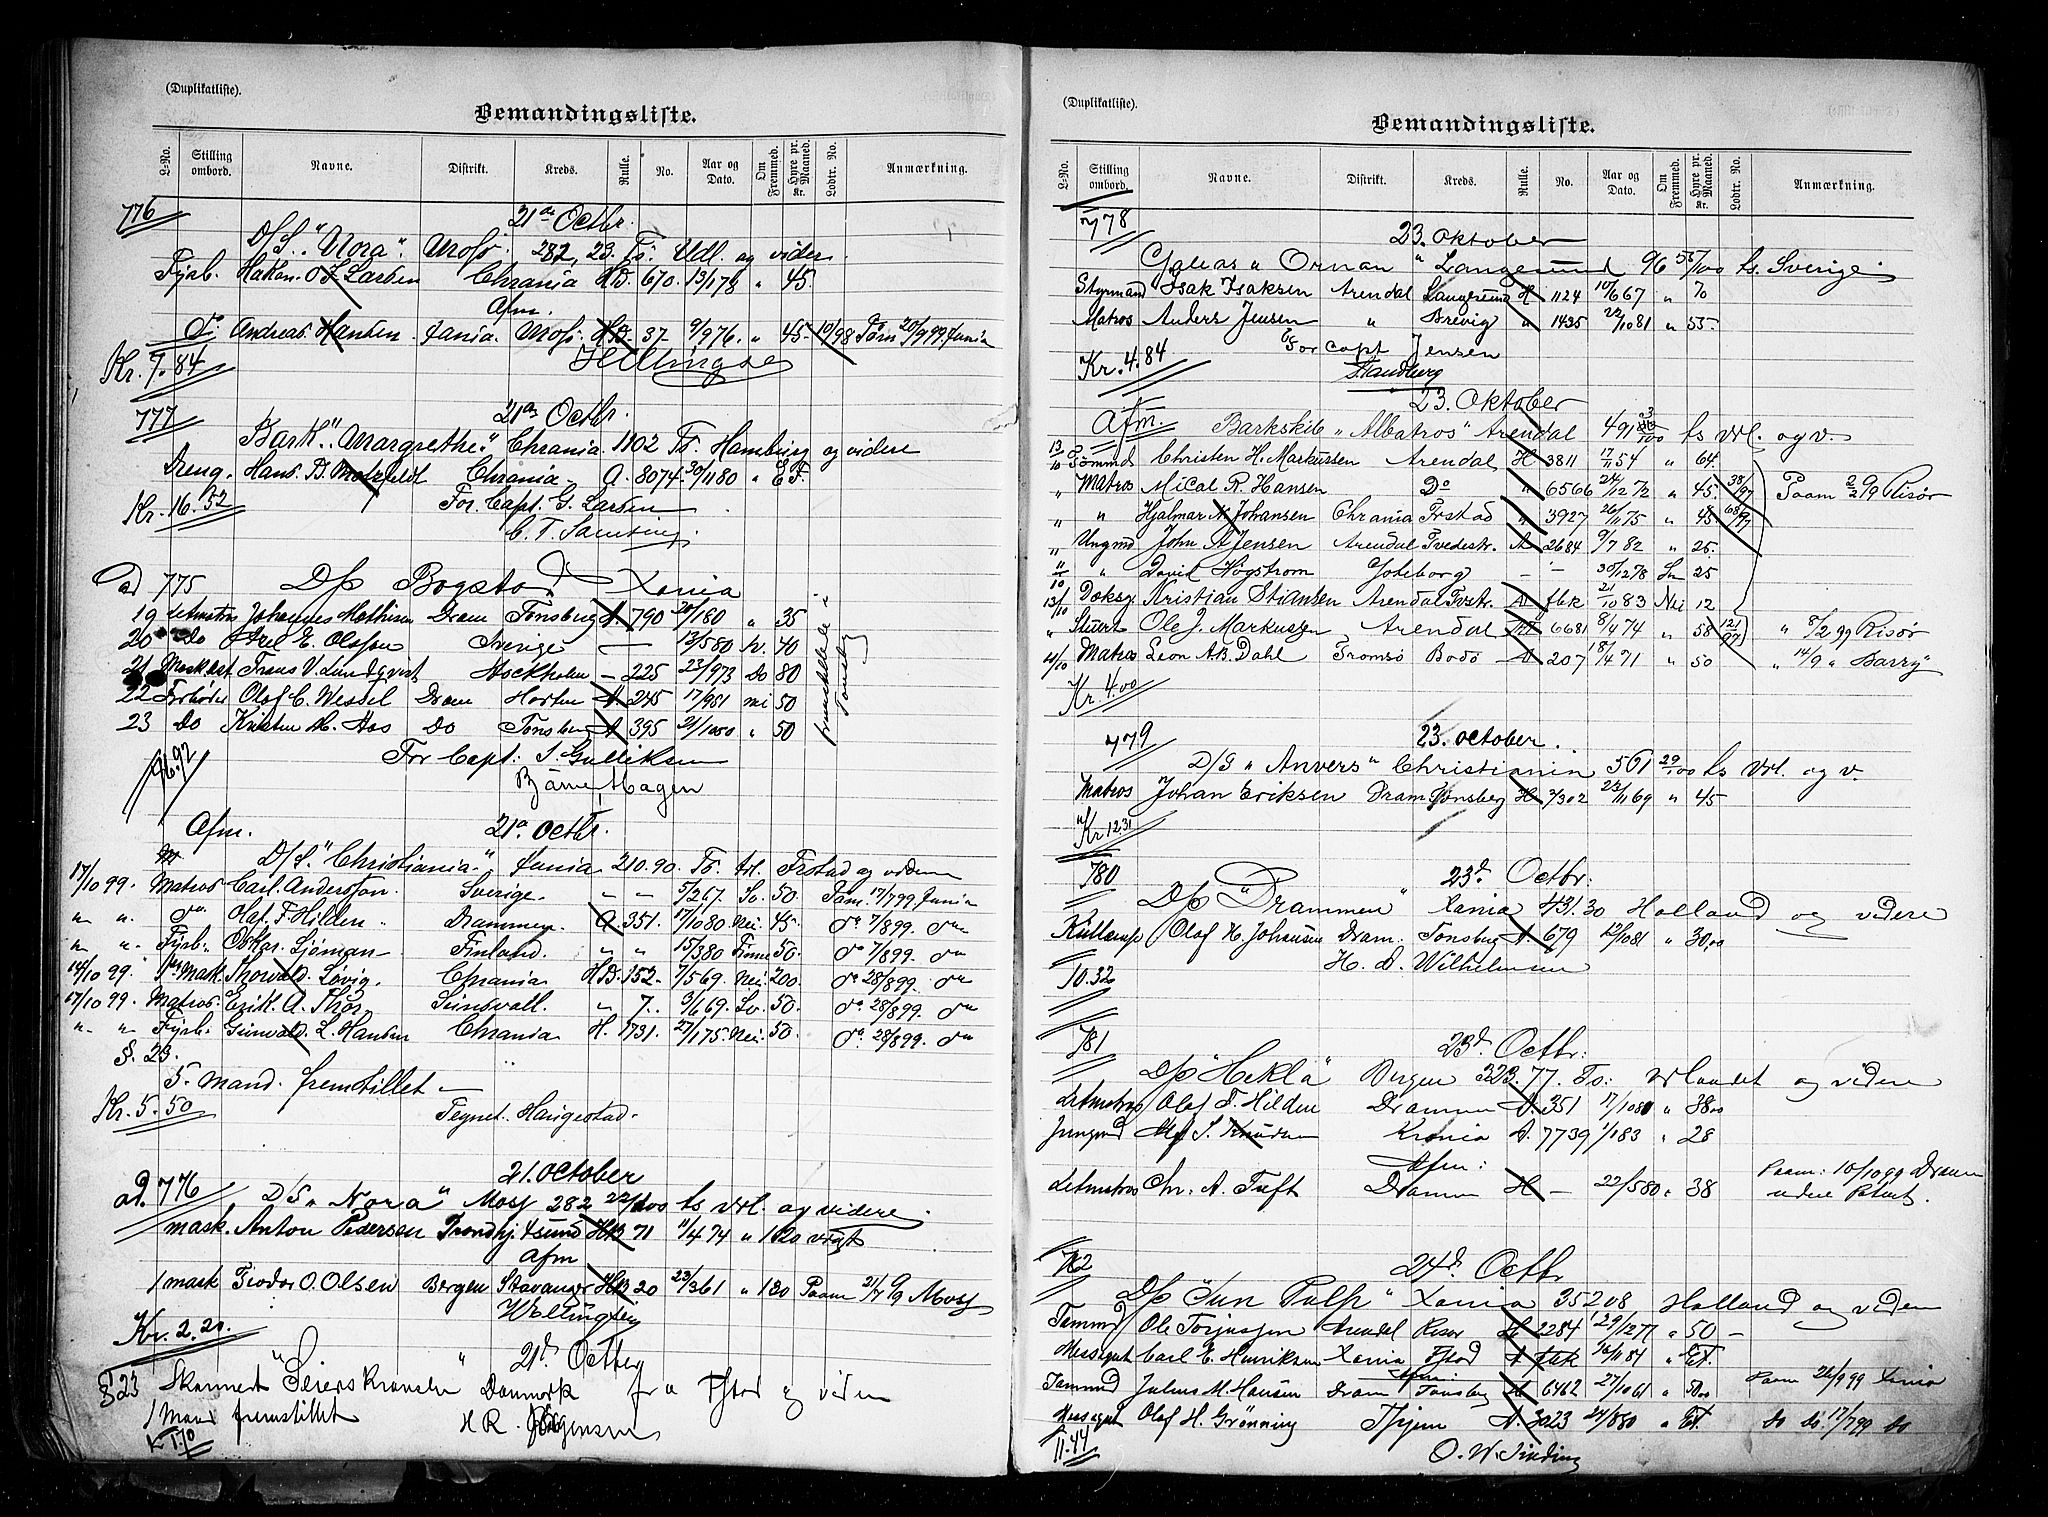 (Duplikatliste).
Bemandingsliste.
L-No. Stilling ombord. Navne. Distrikt. Kreds. Rulle. No. Aar og Dato. Om Fremmed. Hyre pr. Maaned. Kr. Lodtr. No. Anmærkning.
776 21de Octbr.
D/S. "Nora" Moss. 282,23. Ts: Udl. og videre
Fyrb. Hakon O. Larsen Chrania HB. 670. 13/1 78 " 45.
Afm.
Do. Andreas Hansen. Xania. Moss. HB. 37. 9/9 76. " 45. 10/98 Paam 20/9 99 Xania
Kr. 7.84
777 21de Octbr.
Bark. "Margrethe" Chrania. 1102 Ts. Hamburg og videre
Dreng. Hans B. Chrania A. 8074. 30/11 80 "
Kr. 16.52 For Capt. G. Larsen
ad 775 D/S Bogstad Xania
19 Letmatros Johannes Mathisen Dram Tönsberg A. 790 20/1 80 " 35
20 Do Axel E. Olsson Sverige — 12/5 80 40
21 Frans V. Lundqvist Stockholm — 225 23/9 73 Do 80
22 Olaf C. Wessel Dram Horten A. 245 17/9 81 50
23 Do Kristen M. Aas Do Tönsberg A 395 50
fremstillet i Tonsberg
96.92 For Capt: S. Gulliksen
Bjarne Hagen
Afm. 21de Octbr.
D/S. "Christiania" Xania 210.90. Ts. Frstad og videre
17/10 99. Matros Carl Andersson. Sverige. - - 5/2 67. Sv. 50. Paam. 17/7 99. Xania
" " do Olaf F. Hilden. Drammen. A 351. 17/10 80 Nei 45. do 7/8 99. do
" " Fyrb. Oskar Sjöman Finland. " " 15/3 80 Finne 50. do 7/8 99. do
14/10 99. Mask. Thorvald Lövig. Chrania HB. 152. 7/5 69. Nei. 200. do 28/8 99. do
17/10 99 Matros. Erik A. Thor Sundsvall. " 7. 3/1 69. Sv. 50. do 28/8 99. do
" " Fyrb. Gunvald L. Hansen Chrania H. 1731. 27/1 75. Nei. 50. do 28/8 99. do
§. 23.
5. mand. fremstillet —
Kr. 5.50 Tegnet. Haugestad.
ad. 776 21. October
D/S "Nora" Moss 282 22/100 ts Utl. og videre
mask. Anton Pedersen Trondhj. Xsund HB 71 11/4 74 " 120
Afm
1 mask Teodor O. Olsen Bergen Stavanger HB 20 23/3 61 " 120 Paam 21/7 99 Moss
Kr. 2.20.
21de Octbr
§ 23 Skonnert "Seierskransen" Danmark fra Fstad og videre
1 Mand fremstillet H R. Jörgensen
K 1.10
(Duplikatliste).
Bemandingsliste.
L-No. Stilling ombord. Navne. Distrikt. Kreds. Rulle. No. Aar og Dato. Om Fremmed. Hyre pr. Maaned. Kr. Lodtr. No. Anmærkning.
778 23. Oktober
Galeas "Ornan" Langesund 96 55/100 ts. Sverige
Styrmand Isak Isaksen Arendal Langesund H 1124 10/6 67 " 70
Matros Anders Jensen " Brevig " 1435 22/10 81 " 55.
For capt Jensen
Kr. 4.84 Sandberg
23. Oktober
Afm. Barkskib "Albatros" Arendal 491 ts Utl. og v.
13/10 Tömmd Christen H. Markussen Arendal H 3811 17/11 54 " 64.
" Matros Mical R. Hansen Do " 6566 24/12 72 " 45. 38/97 Paam 2/2 99 Risör
" " Hjalmar N. Johansen Chrania Frstad " 3927 26/11 75 " 45 68/97
" Ungmd John A Jensen Arendal Tvedestr. A 2684 9/7 82 " 25.
11/10 " David Högstrom Goteborg — — 30/12 78 Sv 25
13/10 Doksg Kristian Stiansen Arendal Tvstr. A fbk 21/10 83 Nei 12
" Stuert Ole J. Markussen Arendal A 6681 8/4 74 " 58 121/97 " 8/2 99 Risör
14/10 Matros Leon A.B. Dahl Tromsö Bodö A 207 18/4 71 " 50 " 14/9 " Barry"
Kr. 4.00
779 23. October.
D/S "Anvers" Christiania 561 29/100 ts Utl. og v.
Matros Johan Eriksen Dram Tönsberg H 7302 23/11 69 " 45
Kr 12.31
780 23d. Octbr:
D/S "Drammen" Xania 431.30 Holland og videre
Olof H. Johansen Dram. Tonsberg A. 679 12/10 81 " 30,00
H. d. Wilhelmsen
10.32
781 23d. Octbr:
D/S "Hekla" Bergen 323.77. Ts: Utlandet og videre
Letmatros Olaf F. Hilden Drammen A. 351 17/10 80 " 38.00
Jungmd Alf S. Knudsen Krania A. 7739 1/1 83 " 28
Afm:
Letmatros Chr. A. Tuft Drammen H — 22/5 80 " 38 Paam: 10/10 99 Dramn
782 24d. Octbr
D/S "Sun Pulp" Xania 352.08 Holland og videre
Tømmd Ole Torjussen Arendal Risør H 2284 29/12 77 " 50 —
Messegut Carl E. Henriksen Xania Fstad A fbk 26/11 84 "
Afm:
Tømmd Julius M. Hansen Dram Tonsberg H 6462 27/10 61 " 50.00 Paam 26/9 99 Xania
Messegut Olaf H. Grønning A. 3023 24/8 80 " Do do. 17/7 99 do
11.44 O. W. Sinding